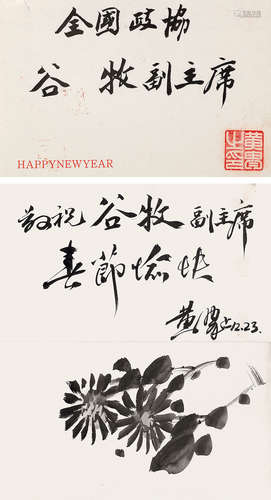 全國政協
谷牧副主席
HAPPYNEWYEAR
敬祝谷牧副主席
春節愉快
黄胄上12.23.